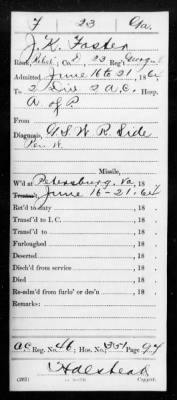 F 23 Ga.
J. K. Foster
Rank, Co. D, 23 Reg't Georgia
Admitted June 16 to 21, 1864
To 2 Div 2 A.C. Hosp.
A of P
From
Diagnosis, G S W R Side
Missile,
W'd at Petersburg, Va, 18
June 16-21, 1864
Ret'd to duty , 18
Transf'd to I. C. , 18
Transf'd to , 18
Furloughed , 18
Deserted , 18
Disch'd from service , 18
Died , 18
Re-adm'd from furlo' or des'n , 18
Remarks:
A.C. Reg. No. 46, Hos. No. 351 Page 94
Halstead
Copyist.